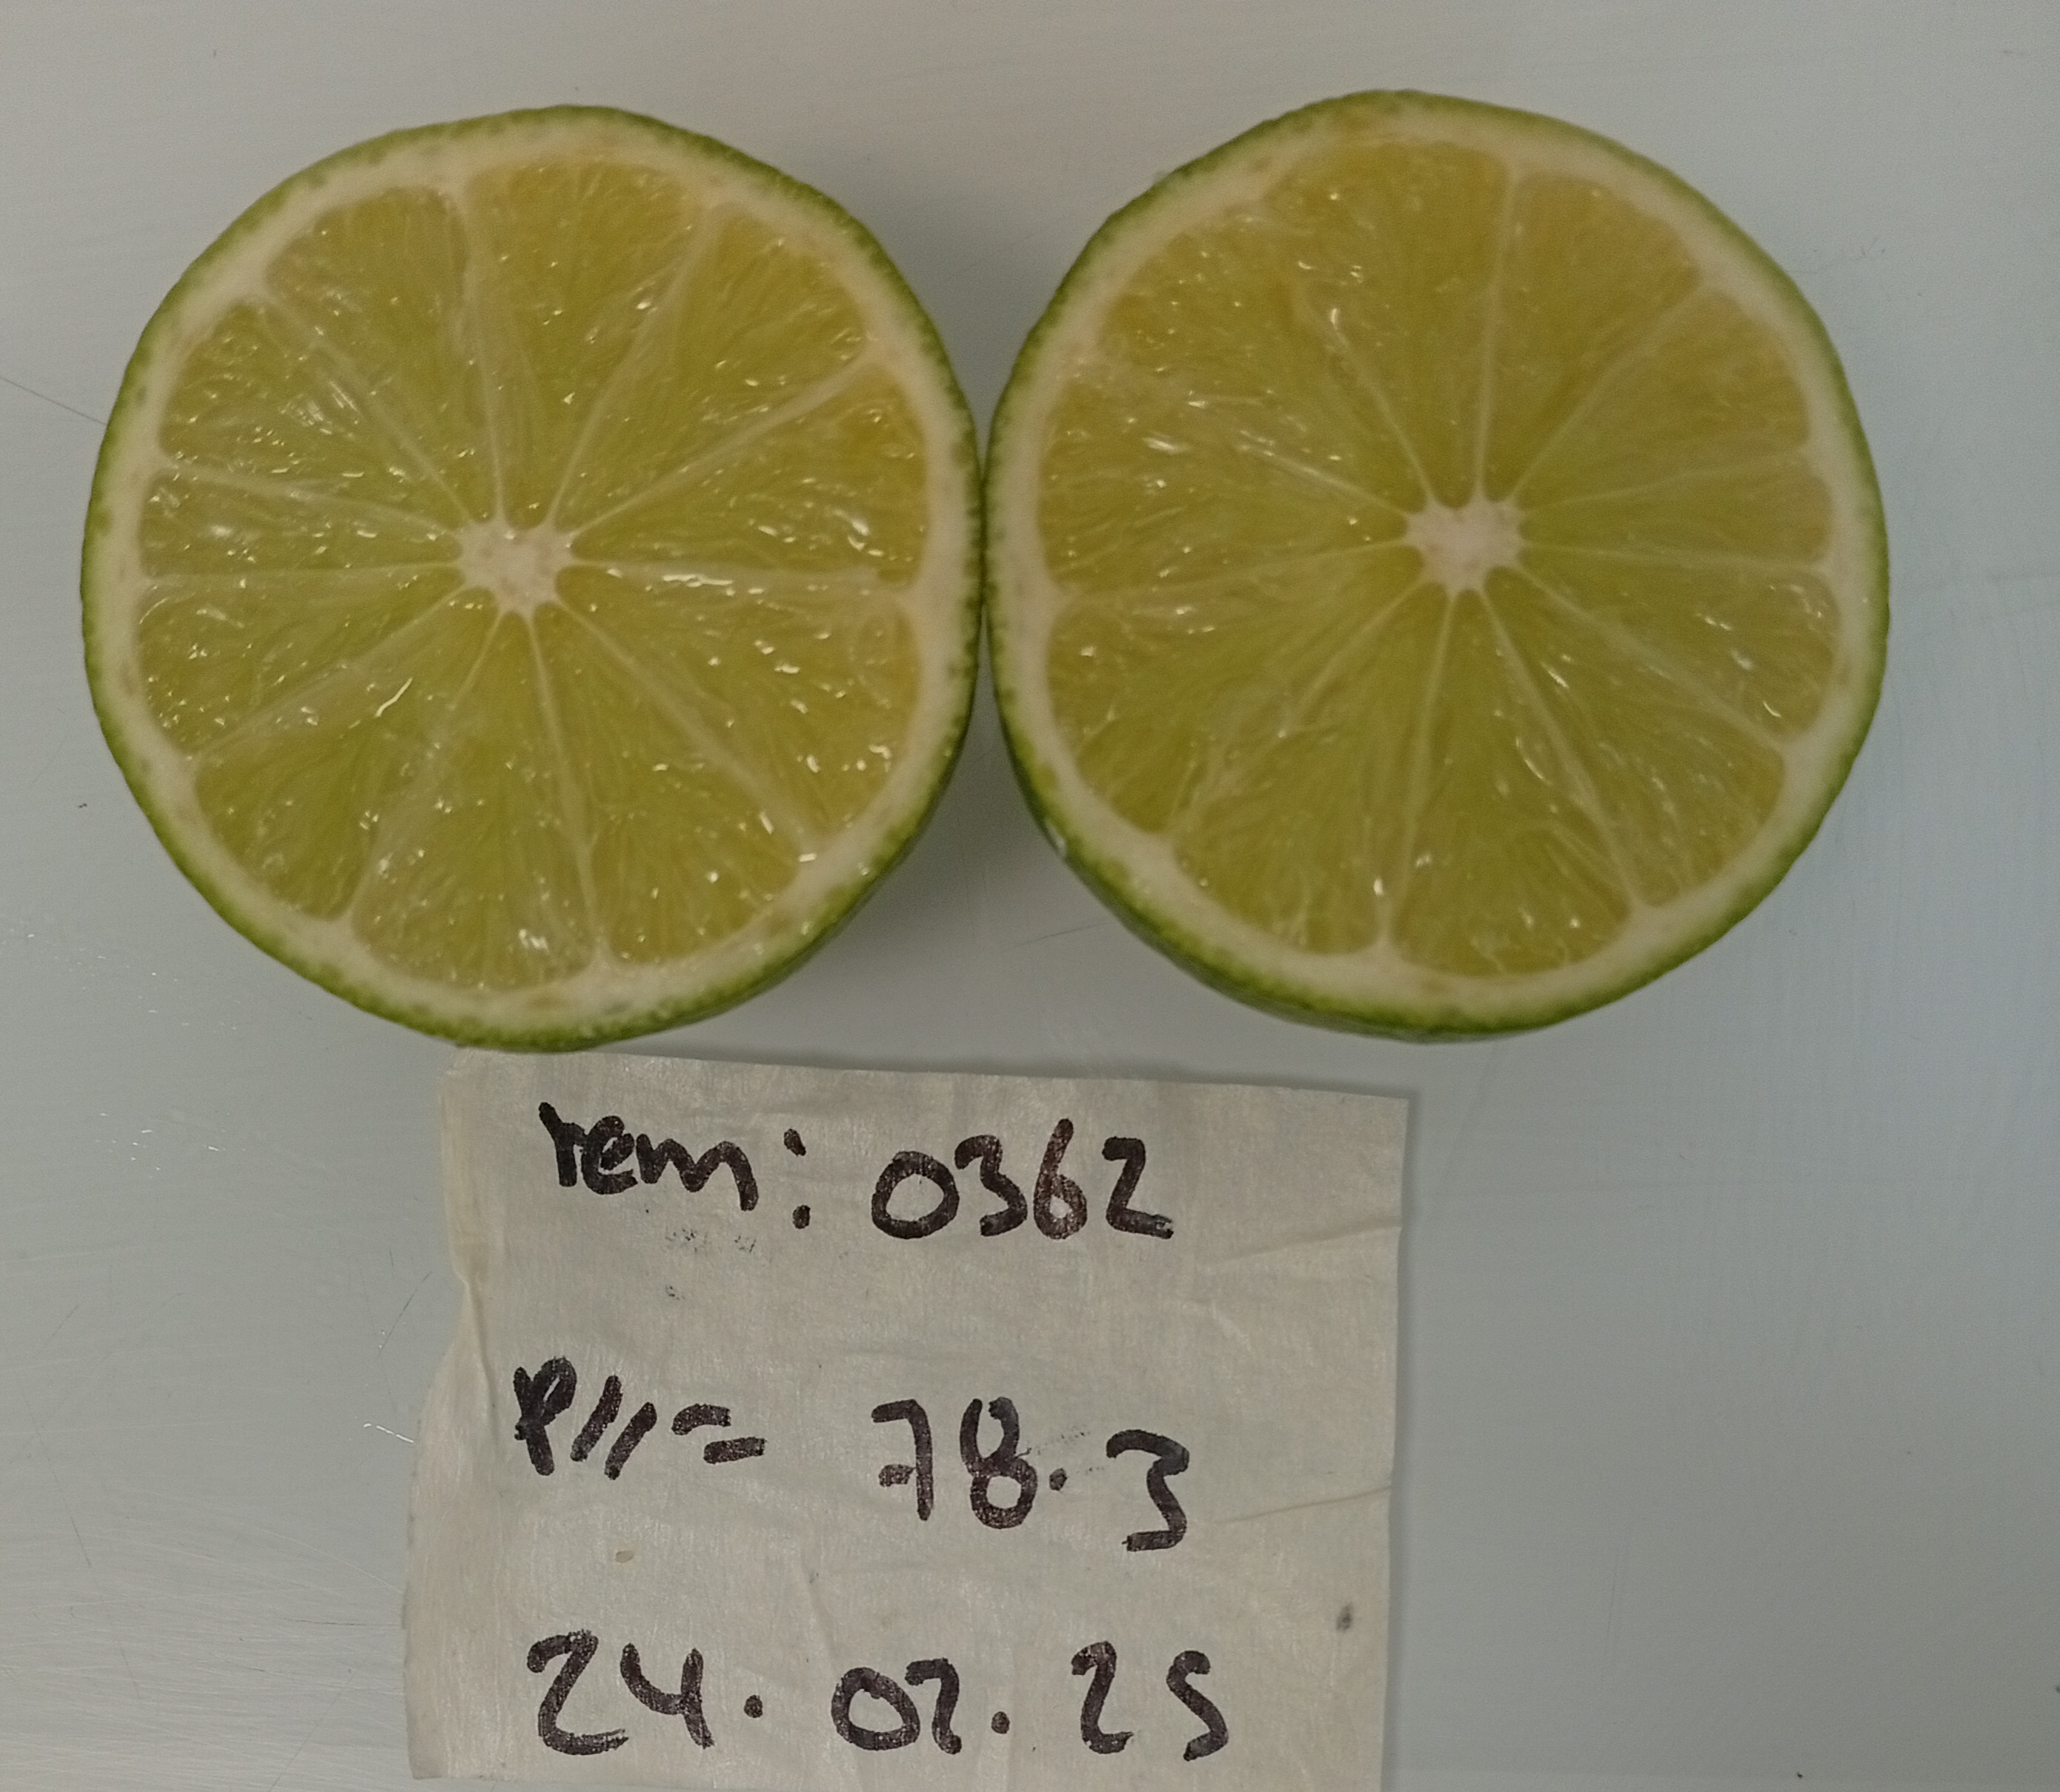 rem: 0362
P11= 78.3
24.02.25